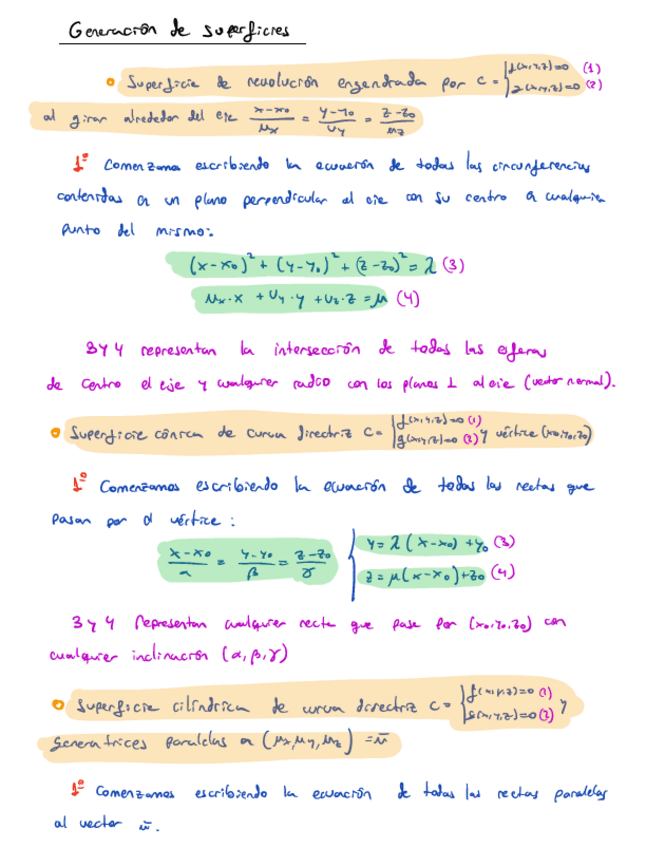 Generación de superficies
Superficie de revolución engendrada por C = { f(x,y,z)=0 (1)
g(x,y,z)=0 (2)
al girar alrededor del eje (x-x₀)/uₓ = (y-y₀)/u_y = (z-z₀)/u_z
1º Comenzamos escribiendo la ecuación de todas las circunferencias
contenidas en un plano perpendicular al eje con su centro en cualquier
punto del mismo:
(x-x₀)² + (y-y₀)² + (z-z₀)² = λ (3)
uₓ·x + u_y·y + u_z·z = μ (4)
3 y 4 representan la intersección de todas las esferas
de centro el eje y cualquier radio con los planos ⊥ al eje (vector normal).
Superficie cónica de curva directriz C = { f(x,y,z)=0 (1)
g(x,y,z)=0 (2) y vértice (x₀,y₀,z₀)
1º Comenzamos escribiendo la ecuación de todas las rectas que
pasan por el vértice:
(x-x₀)/α = (y-y₀)/β = (z-z₀)/γ { y = λ(x-x₀)+y₀ (3)
z = μ(x-x₀)+z₀ (4)
3 y 4 representan cualquier recta que pase por (x₀,y₀,z₀) con
cualquier inclinación (α,β,γ)
Superficie cilíndrica de curva directriz C = { f(x,y,z)=0 (1)
g(x,y,z)=0 (2) y
generatrices paralelas a (uₓ,u_y,u_z) = ū
1º Comenzamos escribiendo la ecuación de todas las rectas paralelas
al vector ū.